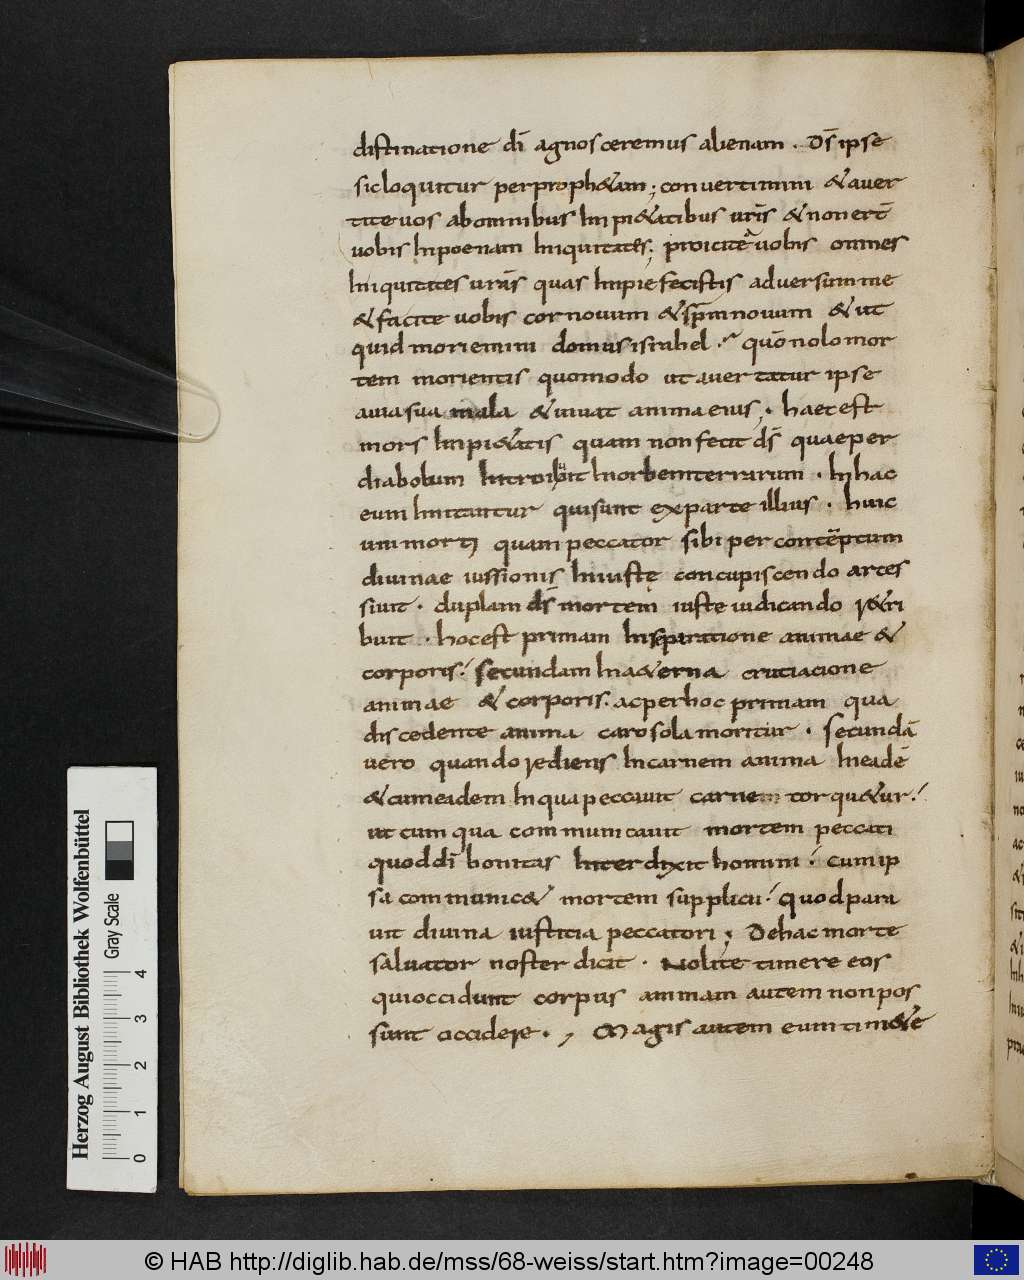 distinatione dī agnosceremus alienam . Dš ipse
sic loquitur per proph&am ; convertimini & aver
tite vos ab omnibus Impi&atibus vrīs & non erī
vobis In poenam Iniquitates ; proicite a vobis omnes
Iniquitates vrās quas Impie fecistis adversum me
& facite vobis cor novum & spm novum & ut
quid moriemini domus israhel . quō nolo mor
tem morientis quomodo ut avertatur ipse
a via sua mala & vivat anima eius . haec est
mors Impi&atis quam non fecit dš quae per
diabolum Introivit In orbem terrarum . In hac
eum Imitantur qui sunt ex parte illius . huic
uni morti quam peccator sibi per contēptum
divinae iussionis Iniustę concupiscendo arces
sivit . duplam dš mortem iuste iudicando r&ri
buit . hoc est primam In separatione animae &
corporis . secundam In a&erna cruciacione
animae & corporis . ac per hoc primam qua
discedente anima caro sola moritur . secundā
vero quando rediens In carnem anima In eadē
& cum eadem In qua peccavit carnem torqu&ur .
ut cum qua communicavit mortem peccati
quod dī bonitas Interdixit homini . cum ip
sa communic& mortem supplicii . quod para
vit divina iustitia peccatori ; De hac morte
salvator noster dicit . Nolite timere eos
qui occidunt corpus animam autem non pos
sunt occidere . , Magis autem eum tim&e
Herzog August Bibliothek Wolfenbüttel
Gray Scale
0 1 2 3 4
© HAB http://diglib.hab.de/mss/68-weiss/start.htm?image=00248